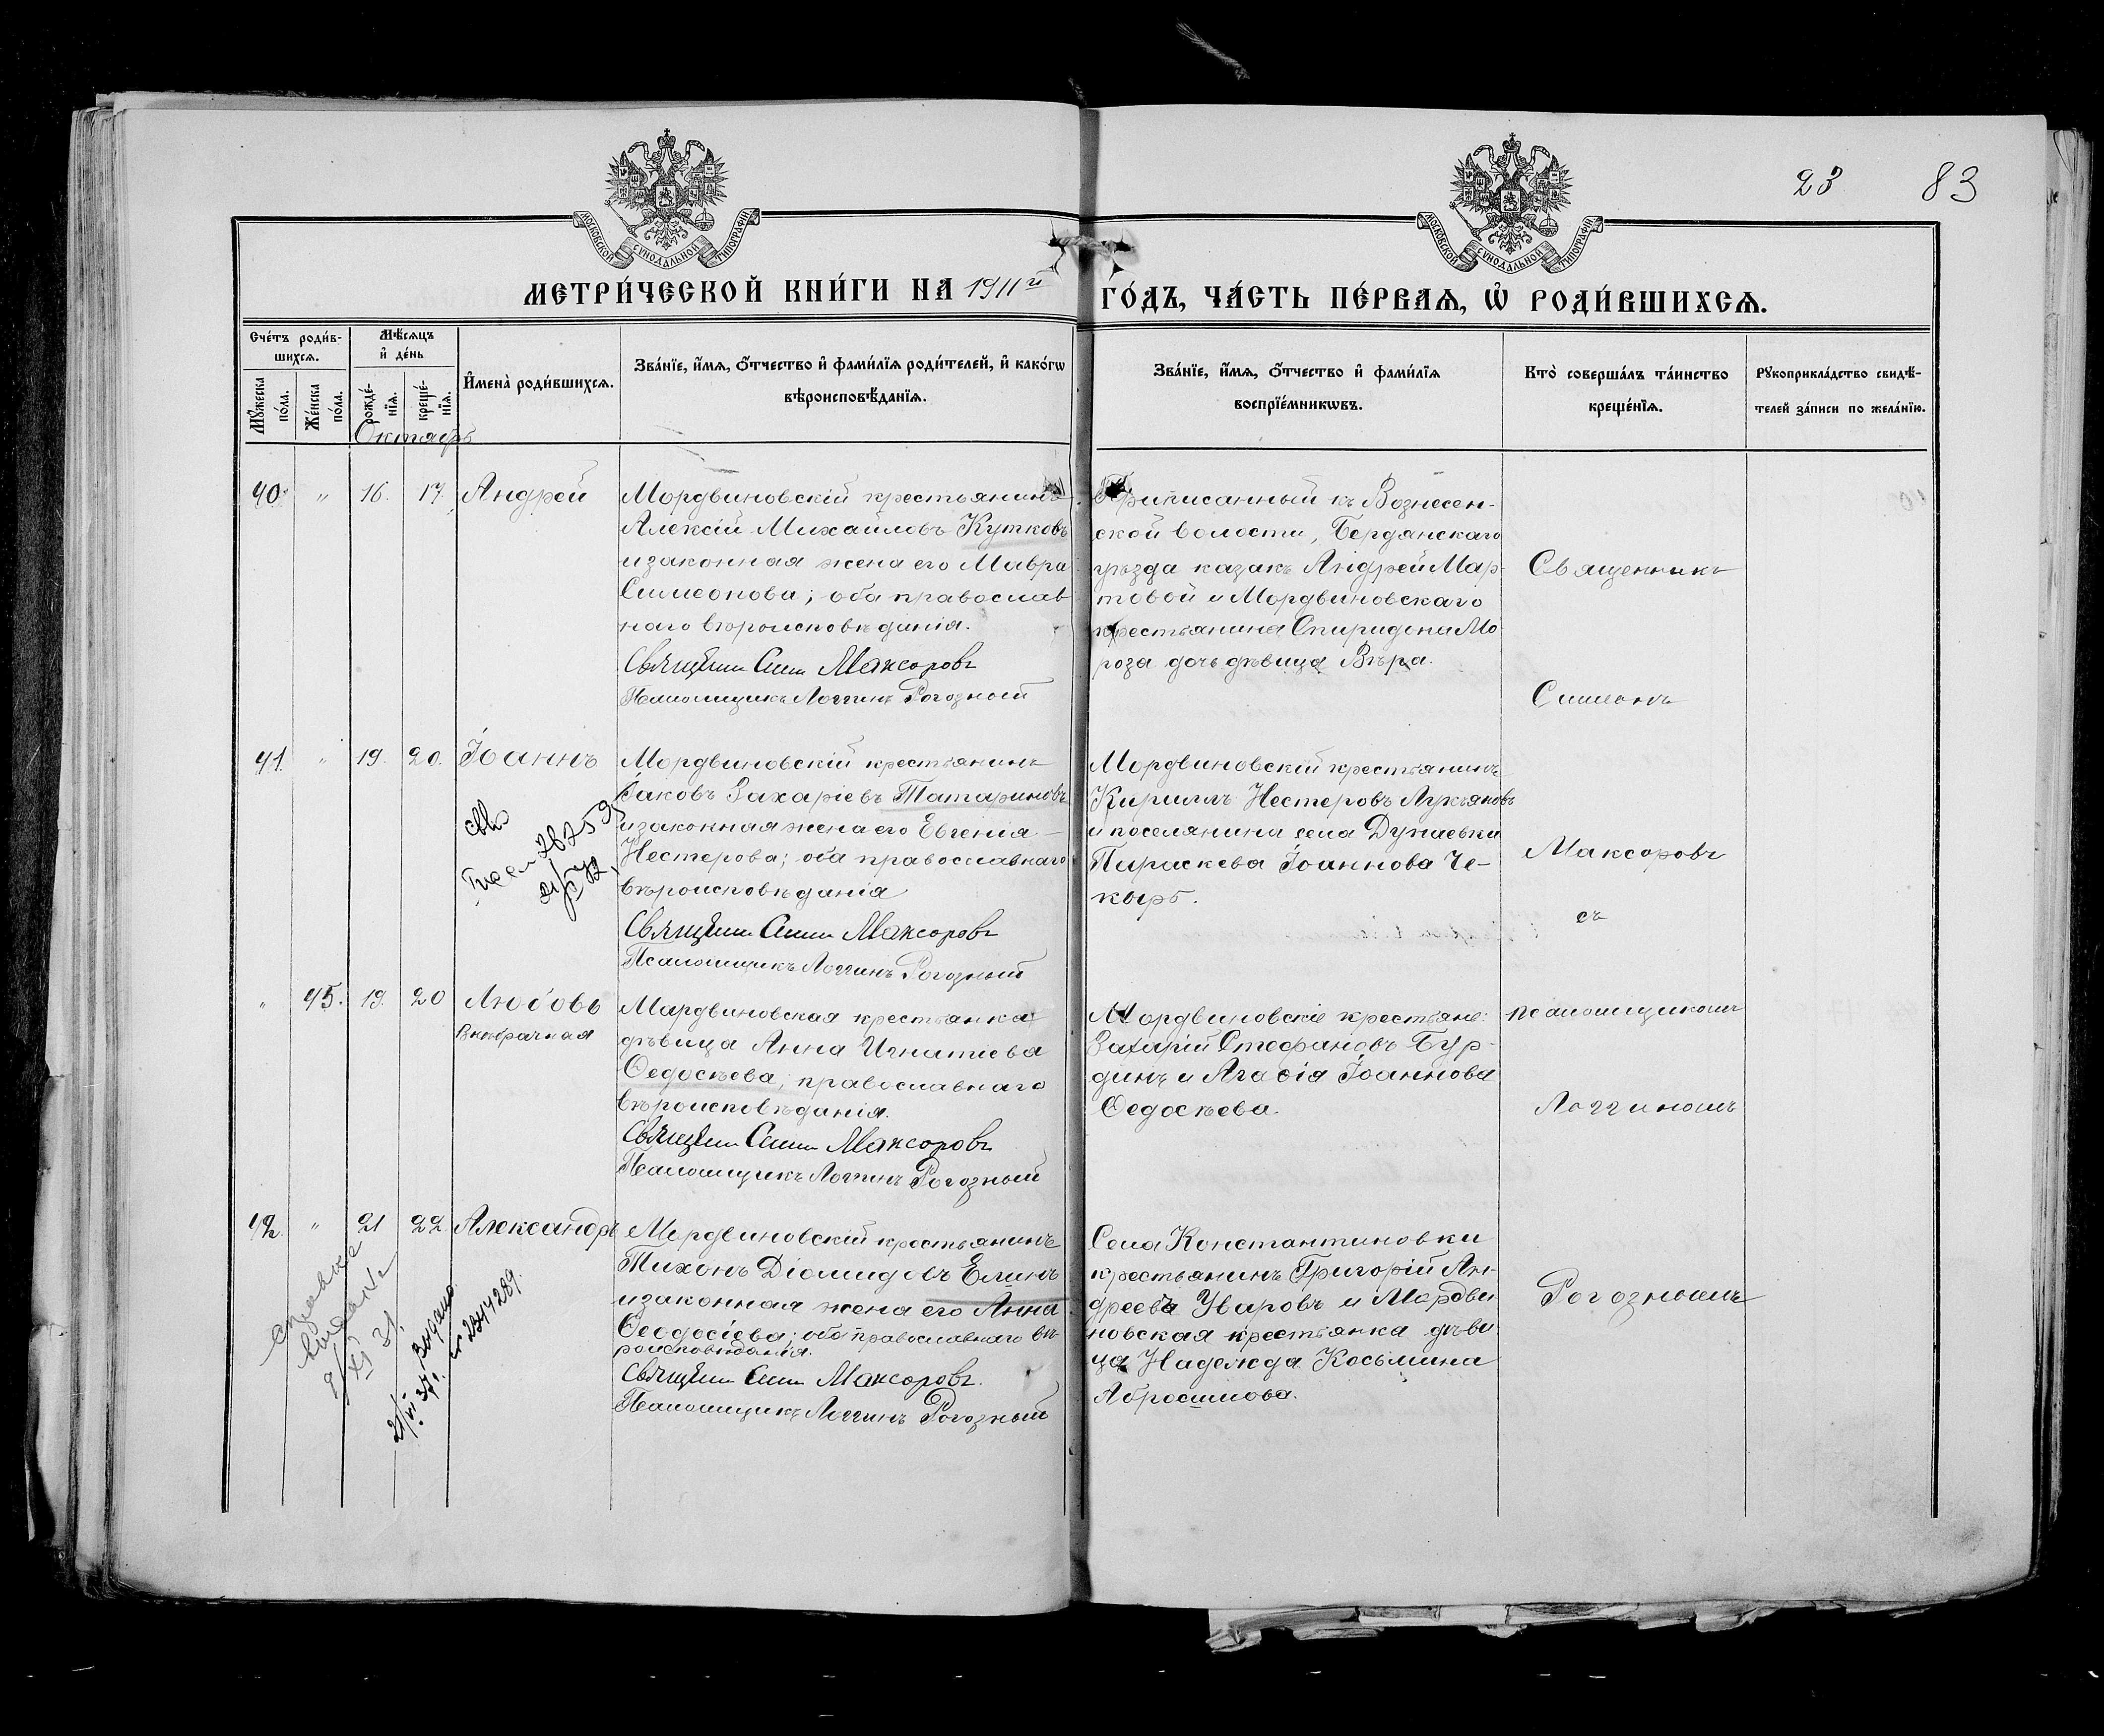 23 83
МОСКОВСКОЙ СѴНОДАЛЬНОЙ ТИПОГРАФІИ
МОСКОВСКОЙ СѴНОДАЛЬНОЙ ТИПОГРАФІИ
МЕТРИ́ЧЕСКОЙ КНИ́ГИ НА 1911й ГО́ДЪ, ЧА́СТЬ ПЕ́РВАѦ, Ѡ҆ РОДИ́ВШИХСѦ.
Сче́тъ роди́в-
шихсѧ.
Мꙋ́жеска по́ла.
Же́нска по́ла.
Мѣ́сѧцъ
и҆ де́нь
рожде́-
нїѧ.
креще́-
нїѧ.
И҆мена̀ роди́вшихсѧ.
Зва́нїе, и҆́мѧ, ѻ҆́тчество и҆ фами́лїѧ роди́телей, и҆ како́гѡ
вѣроисповѣ́данїѧ.
Зва́нїе, и҆́мѧ, ѻ҆́тчество и҆ фами́лїѧ
воспрїе́мникѡвъ.
Кто̀ соверша́лъ та́инство
креще́нїѧ.
Рꙋкоприкла́дство свидѣ́-
телей за́писи по жела́нїю.
Октябрь
40. " 16. 17. Андрей
Мордвиновскій крестьянинъ
Алексій Михайловъ Кутковъ
и законная жена его Мавра
Симеонова; оба православ
наго вѣроисповѣданія.
Священн Сим Максоровъ
Псаломщикъ Логгинъ Рогозный
Приписанный къ Вознесен-
ской волости, Бердянскаго
уѣзда казакъ Андрей Мар-
товой и Мордвиновскаго
крестьянина Спиридона Мо
роза дочь дѣвица Вѣра.
Священникъ
Симеонъ
41. " 19. 20. Іоаннъ
Мордвиновскій крестьянинъ
Іаковъ Захаріевъ Татариновъ
и законная жена его Евгенія
Нестерова; оба православнаго
вѣроисповѣданія
Священн Сим Максоровъ
Псаломщикъ Логгинъ Рогозный
Мордвиновскій крестьянинъ
Кириллъ Нестеровъ Лукьяновъ
и поселянина села Дунаевки
Параскева Іоаннова Че-
кырь.
Максоровъ
съ
" 45. 19. 20 Любовь
Внѣбрачная
Мардвиновская крестьянка
дѣвица Анна Игнатіева
Ѳедосѣева; православнаго
вѣроисповѣданія.
Священн Сим Максоровъ
Псаломщикъ Логгинъ Рогозный
Мордвиновскіе крестьяне:
Захарій Стефановъ Бур-
динъ и Агаѳія Іоаннова
Ѳедосѣева.
псаломщикомъ
Логгиномъ
42. " 21 22 Александръ
Мордвиновскій крестьянинъ
Тихонъ Діомидовъ Елинъ
и законная жена его Анна
Ѳеодосіева; оба православнаго вѣ
роисповѣданія.
Священн Сим Максоровъ.
Псаломщикъ Логгинъ Рогозный
Села Константиновки
крестьянинъ Григорій Ан-
дреевъ Уваровъ и Мордви
новская крестьянка дѣви
ца Надежда Косьмина
Абросимова.
Рогознымъ